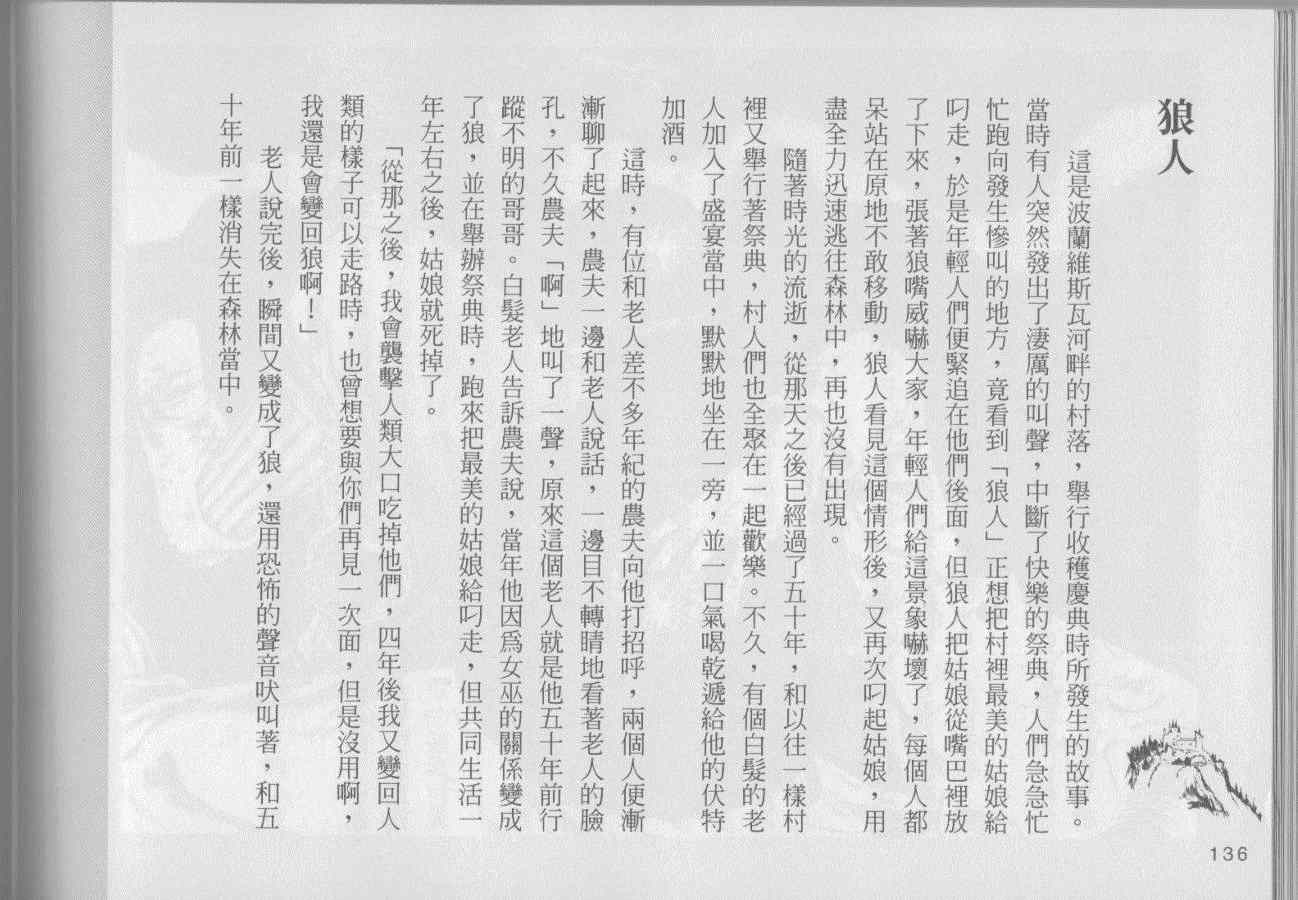 狼人
這是波蘭維斯瓦河畔的村落，舉行收穫慶典時所發生的故事。
當時有人突然發出了淒厲的叫聲，中斷了快樂的祭典，人們急急忙
忙跑向發生慘叫的地方，竟看到「狼人」正想把村裡最美的姑娘給
叼走，於是年輕人們便緊追在他們後面，但狼人把姑娘從嘴巴裡放
了下來，張著狼嘴威嚇大家，年輕人們給這景象嚇壞了，每個人都
呆站在原地不敢移動，狼人看見這個情形後，又再次叼起姑娘，用
盡全力迅速逃往森林中，再也沒有出現。
隨著時光的流逝，從那天之後已經過了五十年，和以往一樣村
裡又舉行著祭典，村人們也全聚在一起歡樂。不久，有個白髮的老
人加入了盛宴當中，默默地坐在一旁，並一口氣喝乾遞給他的伏特
加酒。
這時，有位和老人差不多年紀的農夫向他打招呼，兩個人便漸
漸聊了起來，農夫一邊和老人說話，一邊目不轉睛地看著老人的臉
孔，不久農夫「啊」地叫了一聲，原來這個老人就是他五十年前行
蹤不明的哥哥。白髮老人告訴農夫說，當年他因為女巫的關係變成
了狼，並在舉辦祭典時，跑來把最美的姑娘給叼走，但共同生活一
年左右之後，姑娘就死掉了。
「從那之後，我會襲擊人類大口吃掉他們，四年後我又變回人
類的樣子可以走路時，也曾想要與你們再見一次面，但是沒用啊，
我還是會變回狼啊！」
老人說完後，瞬間又變成了狼，還用恐怖的聲音吠叫著，和五
十年前一樣消失在森林當中。
136